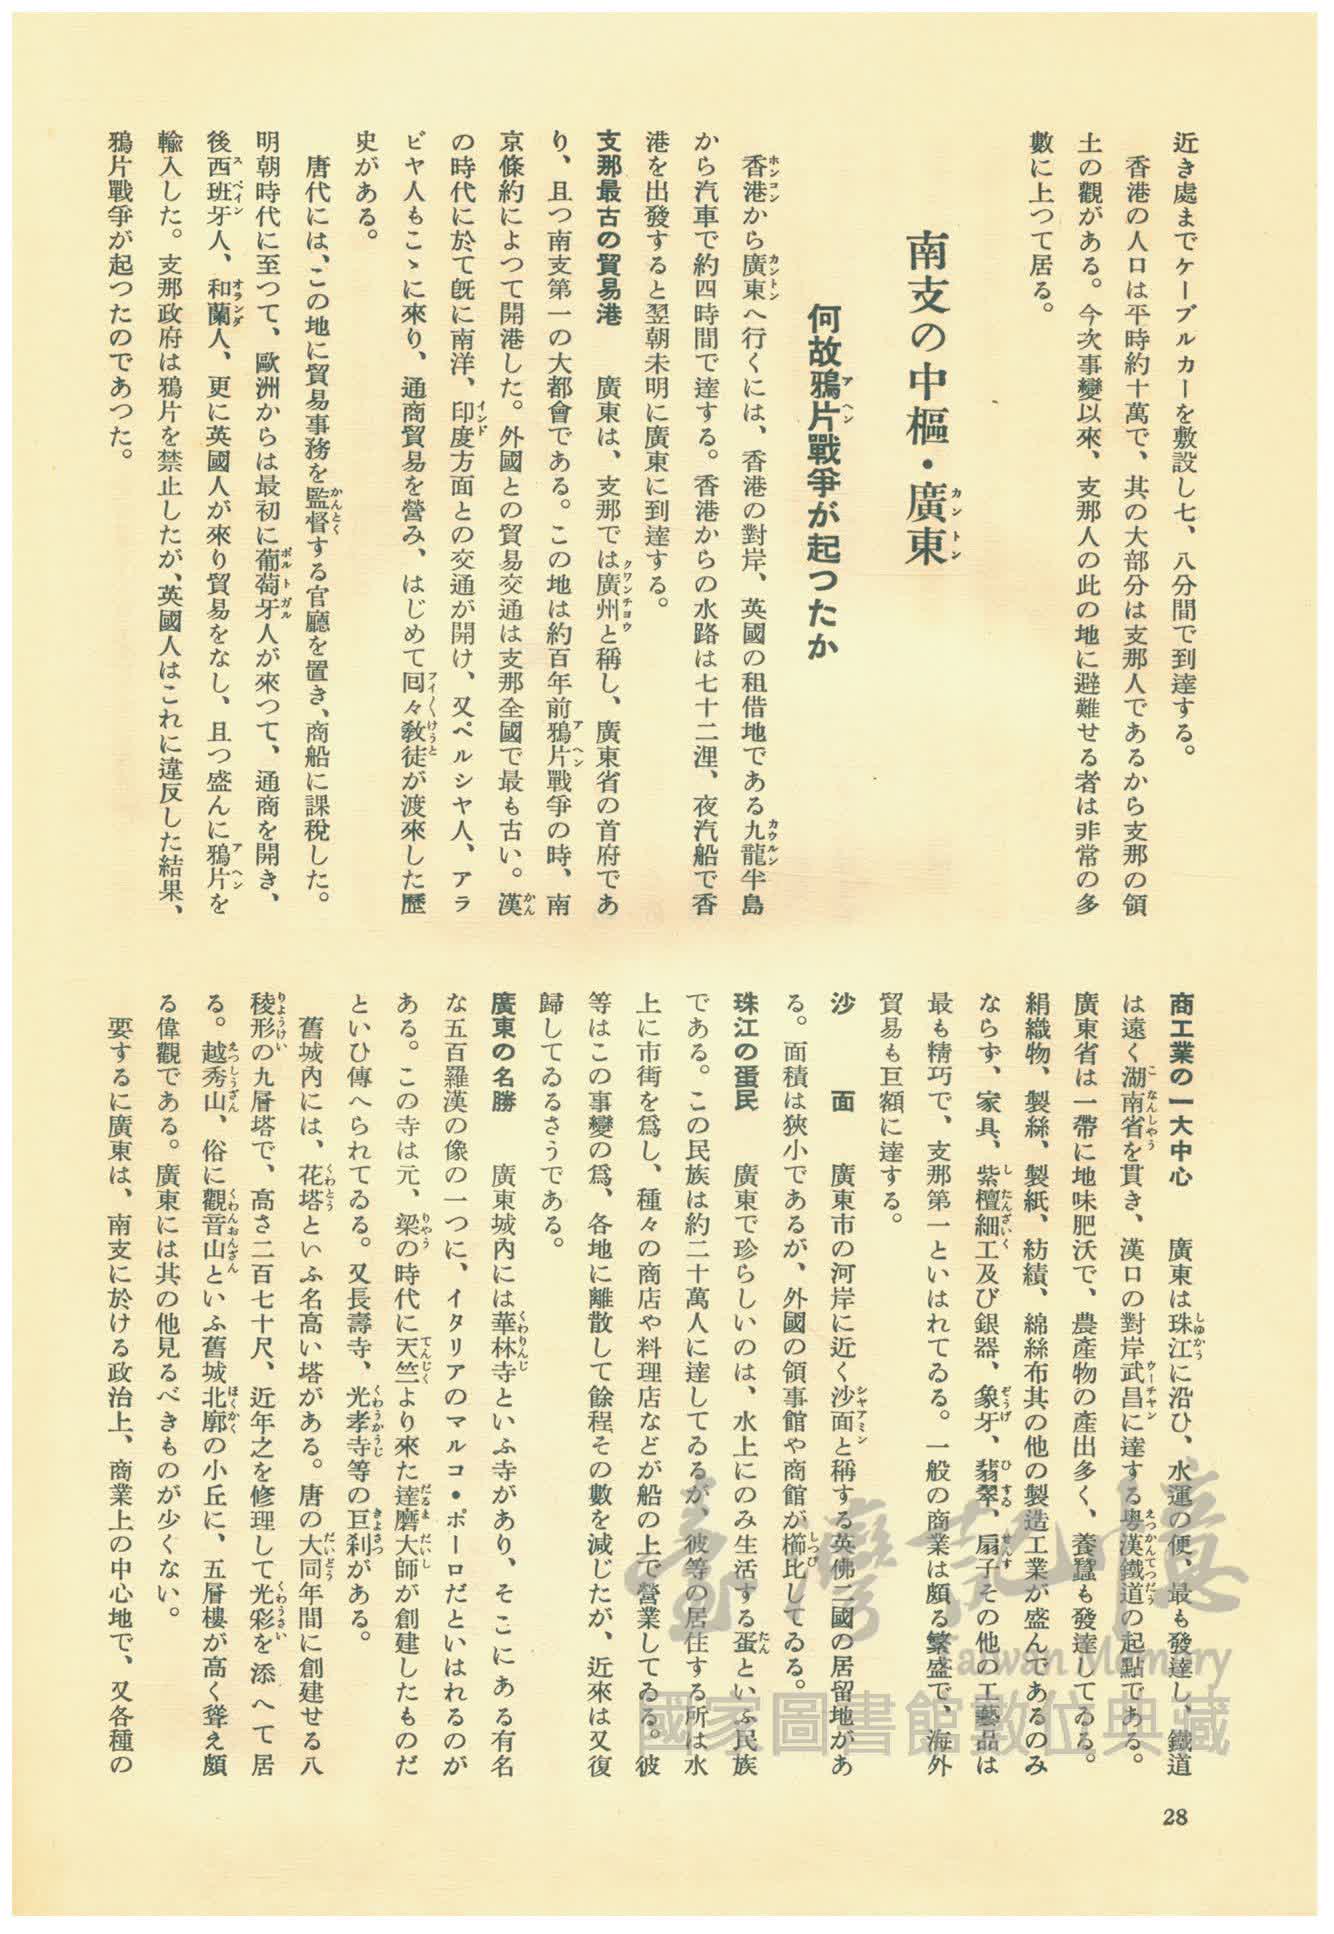 近き處までケーブルカーを敷設し七、八分間で到達する。
香港の人口は平時約十萬で、其の大部分は支那人であるから支那の領
土の觀がある。今次事變以來、支那人の此の地に避難せる者は非常の多
數に上つて居る。
南支の中樞・廣東
カントン
何故鴉片戰爭が起つたか
アヘン
香港から廣東へ行くには、香港の對岸、英國の租借地である九龍半島
ホンコン カントン カウルン
から汽車で約四時間で達する。香港からの水路は七十二浬、夜汽船で香
港を出發すると翌朝未明に廣東に到達する。
支那最古の貿易港 廣東は、支那では廣州と稱し、廣東省の首府であ
クワンチヨウ
り、且つ南支第一の大都會である。この地は約百年前鴉片戰爭の時、南
アヘン
京條約によつて開港した。外國との貿易交通は支那全國で最も古い。漢
かん
の時代に於て既に南洋、印度方面との交通が開け、又ペルシヤ人、アラ
インド
ビヤ人もこゝに來り、通商貿易を營み、はじめて回々敎徒が渡來した歷
フイ〱けうと
史がある。
唐代には、この地に貿易事務を監督する官廳を置き、商船に課稅した。
かんとく
明朝時代に至つて、歐洲からは最初に葡萄牙人が來つて、通商を開き、
ポルトガル
後西班牙人、和蘭人、更に英國人が來り貿易をなし、且つ盛んに鴉片を
スペイン オランダ アヘン
輸入した。支那政府は鴉片を禁止したが、英國人はこれに違反した結果、
鴉片戰爭が起つたのであつた。
商工業の一大中心 廣東は珠江に沿ひ、水運の便、最も發達し、鐵道
しゆかう
は遠く湖南省を貫き、漢口の對岸武昌に達する粵漢鐵道の起點である。
こなんしやう ウーチヤン えつかんてつだう
廣東省は一帶に地味肥沃で、農產物の產出多く、養蠶も發達してゐる。
絹織物、製絲、製紙、紡績、綿絲布其の他の製造工業が盛んであるのみ
ならず、家具、紫檀細工及び銀器、象牙、翡翠、扇子その他の工藝品は
したんざいく ざうげ ひする せんす
最も精巧で、支那第一といはれてゐる。一般の商業は頗る繁盛で、海外
貿易も巨額に達する。
沙面 廣東市の河岸に近く沙面と稱する英佛二國の居留地があ
シヤアミン
る。面積は狹小であるが、外國の領事館や商館が櫛比してゐる。
しつぴ
珠江の蛋民 廣東で珍らしいのは、水上にのみ生活する蛋といふ民族
たん
である。この民族は約二十萬人に達してゐるが、彼等の居住する所は水
上に市街を爲し、種々の商店や料理店などが船の上で營業してゐる。彼
等はこの事變の爲、各地に離散して餘程その數を減じたが、近來は又復
歸してゐるさうである。
廣東の名勝 廣東城內には華林寺といふ寺があり、そこにある有名
くわりんじ
な五百羅漢の像の一つに、イタリアのマルコ・ポーロだといはれるのが
ある。この寺は元、梁の時代に天竺より來た達磨大師が創建したものだ
りやう てんじく だるまだいし
といひ傳へられてゐる。又長壽寺、光孝寺等の巨刹がある。
くわうかうじ きよさつ
舊城內には、花塔といふ名高い塔がある。唐の大同年間に創建せる八
くわとう だいどう
稜形の九層塔で、高さ二百七十尺、近年之を修理して光彩を添へて居
りようけい くわうさい
る。越秀山、俗に觀音山といふ舊城北廓の小丘に、五層樓が高く聳え頗
えつしうざん くわんおんざん ほくかく
る偉觀である。廣東には其の他見るべきものが少くない。
要するに廣東は、南支に於ける政治上、商業上の中心地で、又各種の
28
臺灣記憶
Taiwan Memory
國家圖書館數位典藏